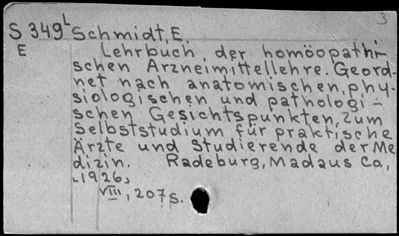 3
S 349L Schmidt, E.
E Lehrbuch der homöopathi-
schen Arzneimittellehre. Geord-
net nach anatomischen, phy-
siologischen und pathologi-
schen Gesichtspunkten, zum
Selbststudium für praktische
Ärzte und Studierende der Me
dizin. Radeburg, Madaus Co.,
1926,
VIII, 207 S.